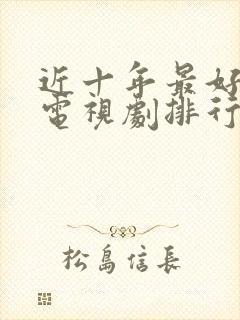 近十年最好
電視劇排行
松島信長